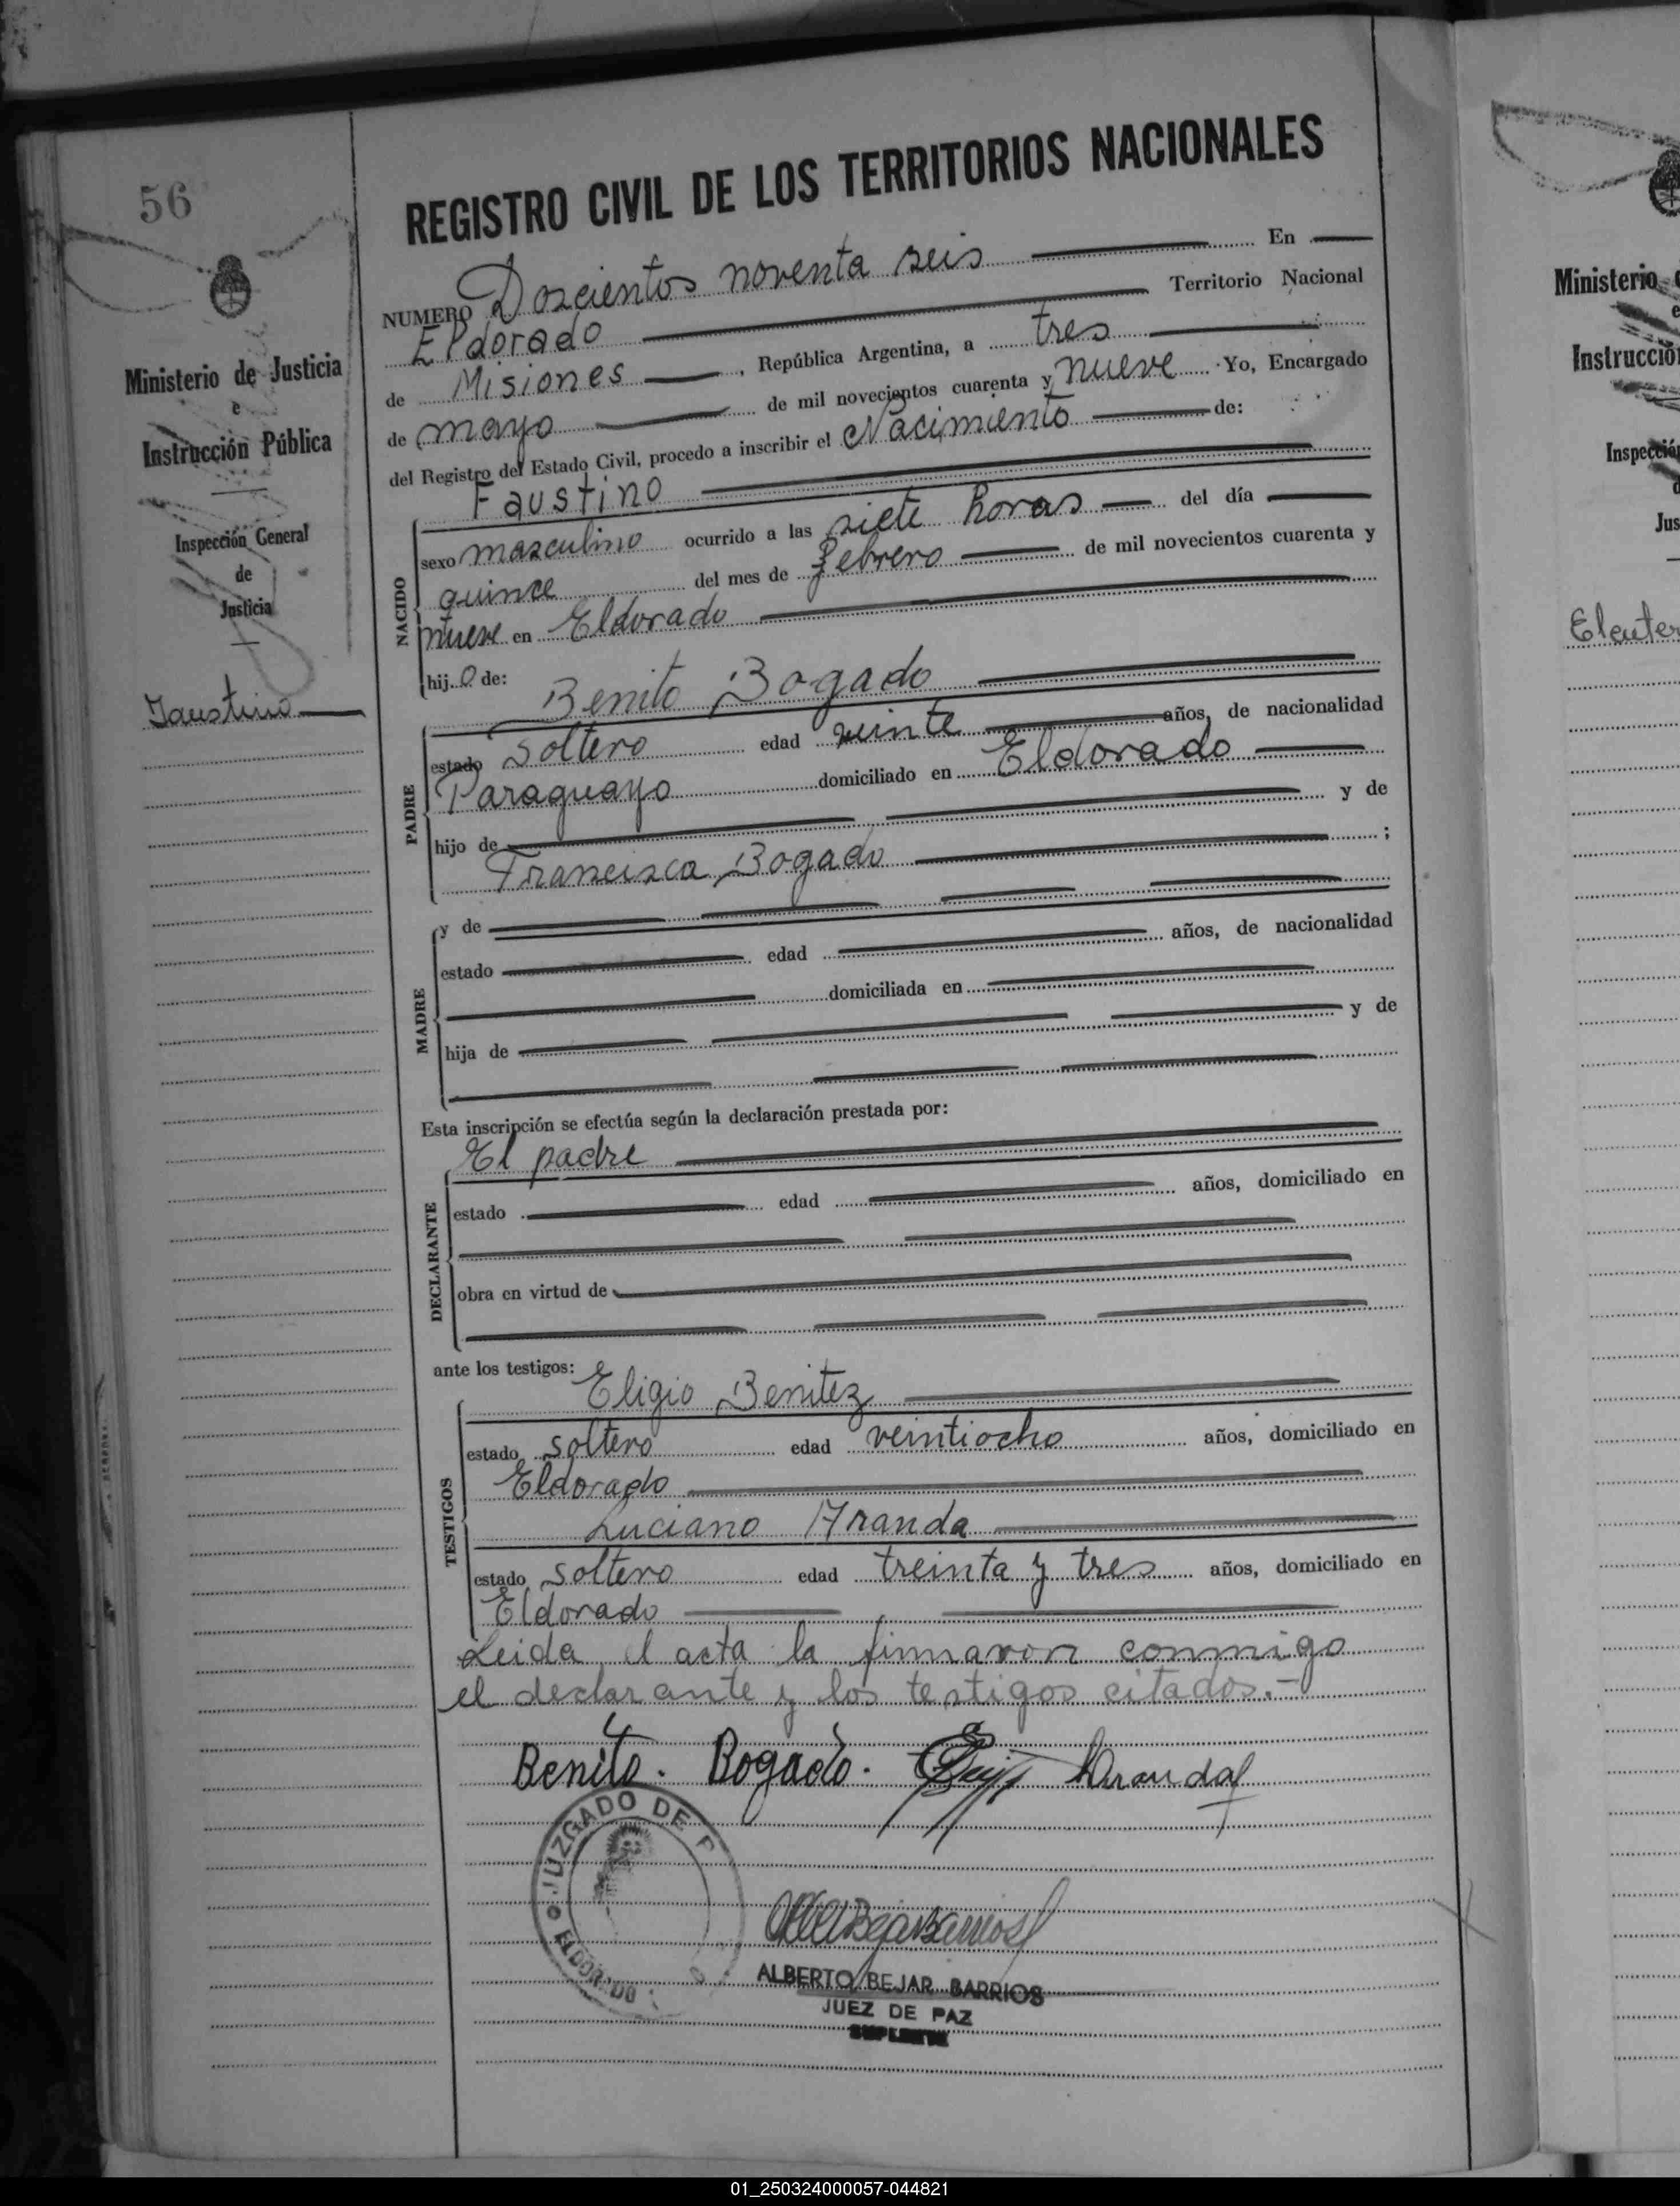 56
Ministerio de Justicia
e
Instrucción Pública
Inspección General
de
Justicia
Faustino
REGISTRO CIVIL DE LOS TERRITORIOS NACIONALES
NUMERO Doscientos noventa seis En
Eldorado Territorio Nacional
de Misiones, República Argentina, a tres
de mayo de mil novecientos cuarenta y nueve. Yo, Encargado
del Registro del Estado Civil, procedo a inscribir el Nacimiento de:
Faustino
NACIDO
sexo masculino ocurrido a las siete horas del día
quince del mes de febrero de mil novecientos cuarenta y
nueve en Eldorado
hijo de:
Benito Bogado
PADRE
estado soltero edad veinte años, de nacionalidad
Paraguayo domiciliado en Eldorado
hijo de y de
Francisca Bogado ;
MADRE
y de
estado edad años, de nacionalidad
domiciliada en
hija de y de
Esta inscripción se efectúa según la declaración prestada por:
El padre
DECLARANTE
estado edad años, domiciliado en
obra en virtud de
ante los testigos:
Eligio Benitez
TESTIGOS
estado soltero edad veintiocho años, domiciliado en
Eldorado
Luciano Aranda
estado soltero edad treinta y tres años, domiciliado en
Eldorado
Leida el acta la firmaron conmigo
el declarante y los testigos citados.-
Benito. Bogado. Aranda
JUZGADO DE P
ELDORADO
ALBERTO BEJAR BARRIOS
JUEZ DE PAZ
SUPLENTE
Ministerio
Instrucción
Inspección
Jus
Eleuter
01_250324000057-044821